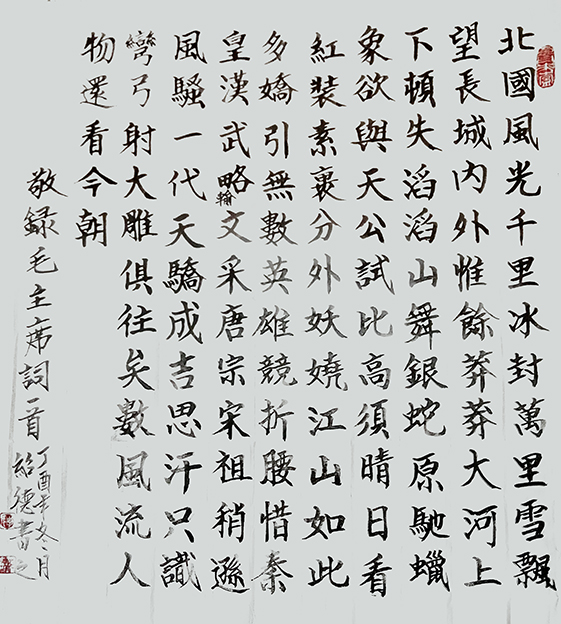 北國風光千里冰封萬里雪飄
望長城内外惟餘莽莽大河上
下頓失滔滔山舞銀蛇原馳蠟
象欲與天公試比高須晴日看
紅裝素裹分外妖嬈江山如此
多嬌引無數英雄競折腰惜秦
皇漢武略輸文采唐宗宋祖稍遜
風騷一代天驕成吉思汗只識
彎弓射大雕俱往矣數風流人
物還看今朝
敬録毛主席詞一首
丁酉年冬月
紹德書之